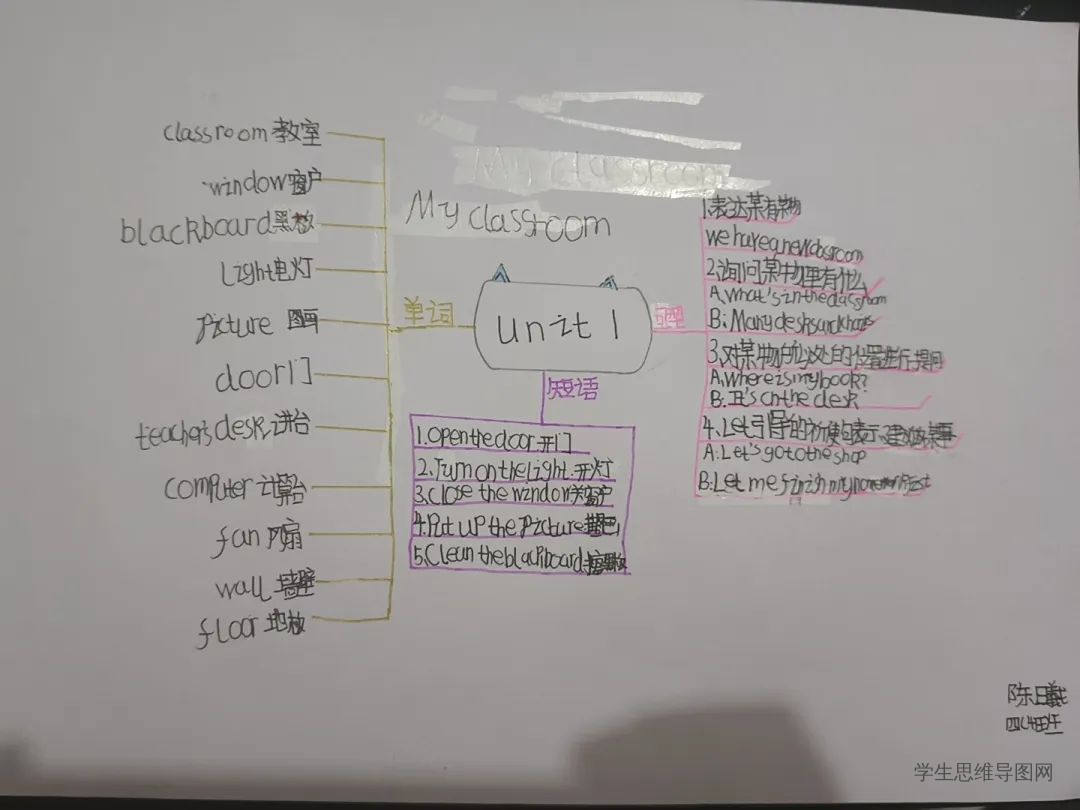 My classroom
My classroom
unit 1
单词
classroom 教室
window 窗户
blackboard 黑板
Light 电灯
picture 图画
door 门
teacher's desk 讲台
computer 计算台
fan 风扇
wall 墙壁
floor 地板
短语
1.Open the door 开门
2.Turn on the Light 开灯
3.Close the window 关窗户
4.Put up the picture
5.Clean the blackboard
句型
1.表达某有某物
We have a new classroom
2.询问某物里有什么
A.What's in the classroom
B:Many desks and chairs
3.对某物的位置进行提问
A.Where is my book?
B.It's on the desk
4.Let引导的祈使句表示建议做某事
A:Let's go to the shop
B:Let me finish my homework first
陈曦
学生思维导图网